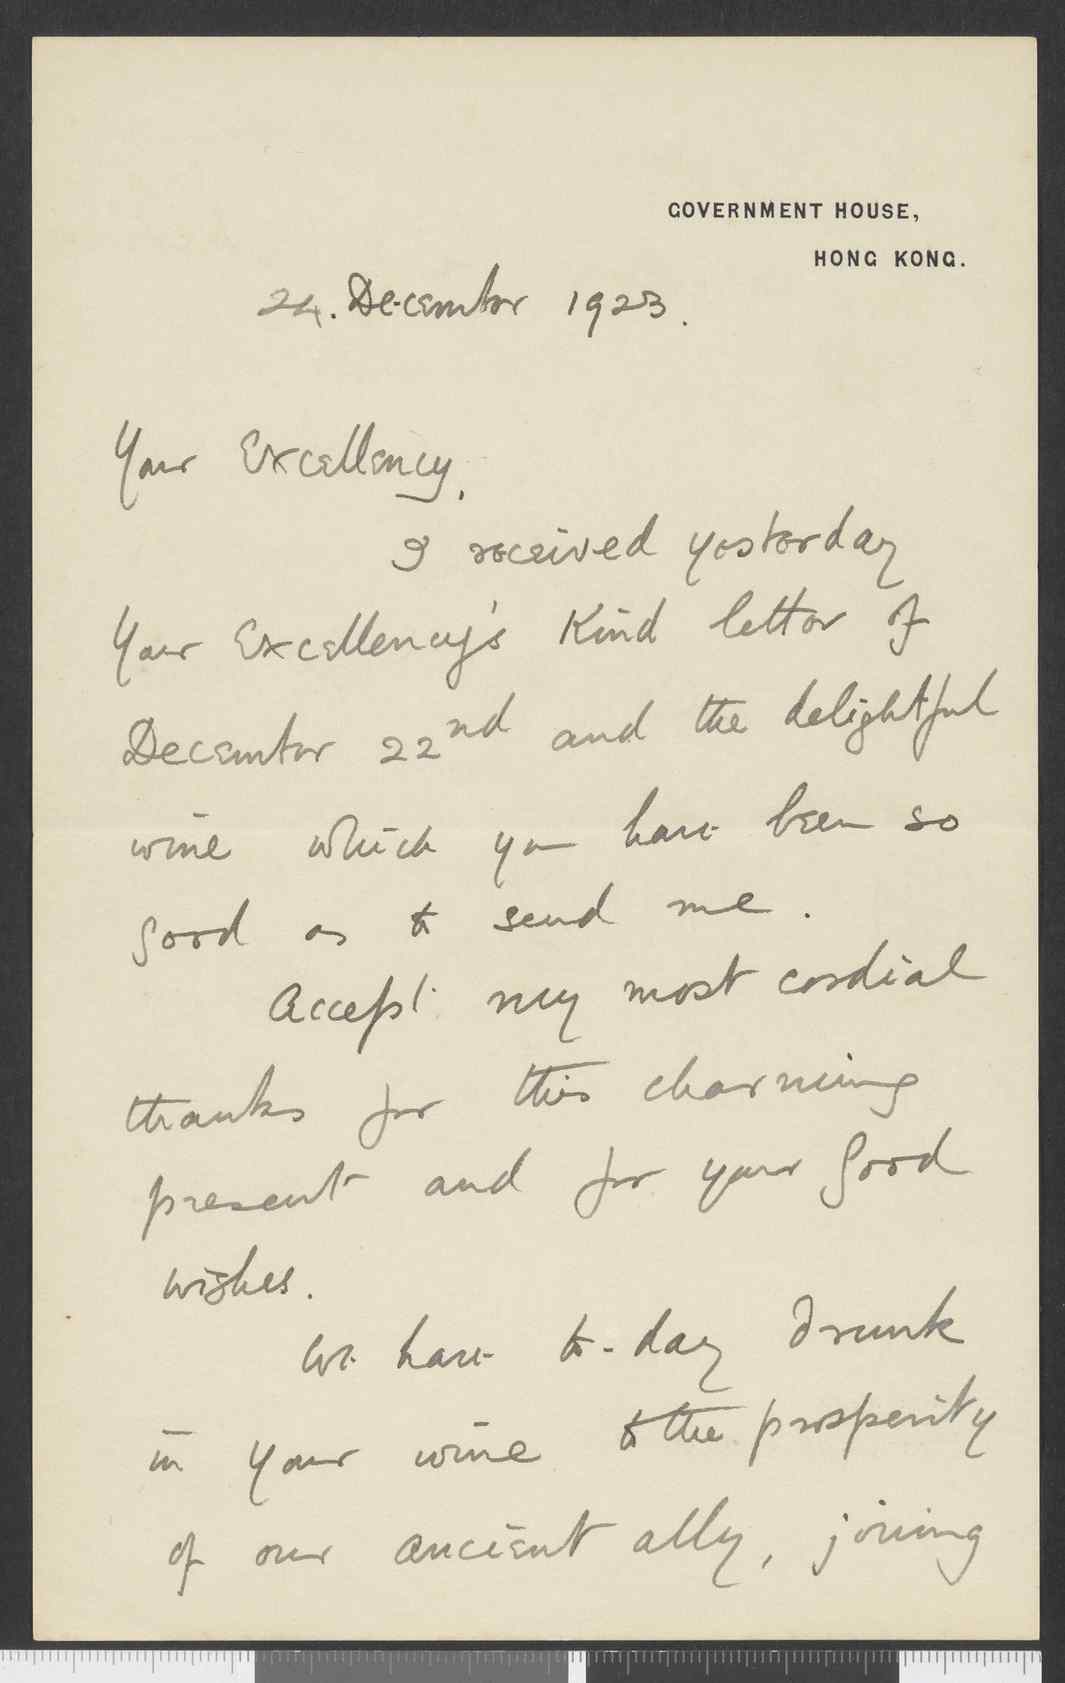 GOVERNMENT HOUSE,
HONG KONG.
24. December 1923.
Your Excellency,
I received yesterday
Your Excellency's kind letter of
December 22nd and the delightful
wine which you have been so
good as to send me.
Accept my most cordial
thanks for this charming
present and for your good
wishes.
We have to-day drunk
in your wine to the prosperity
of our ancient ally, joining